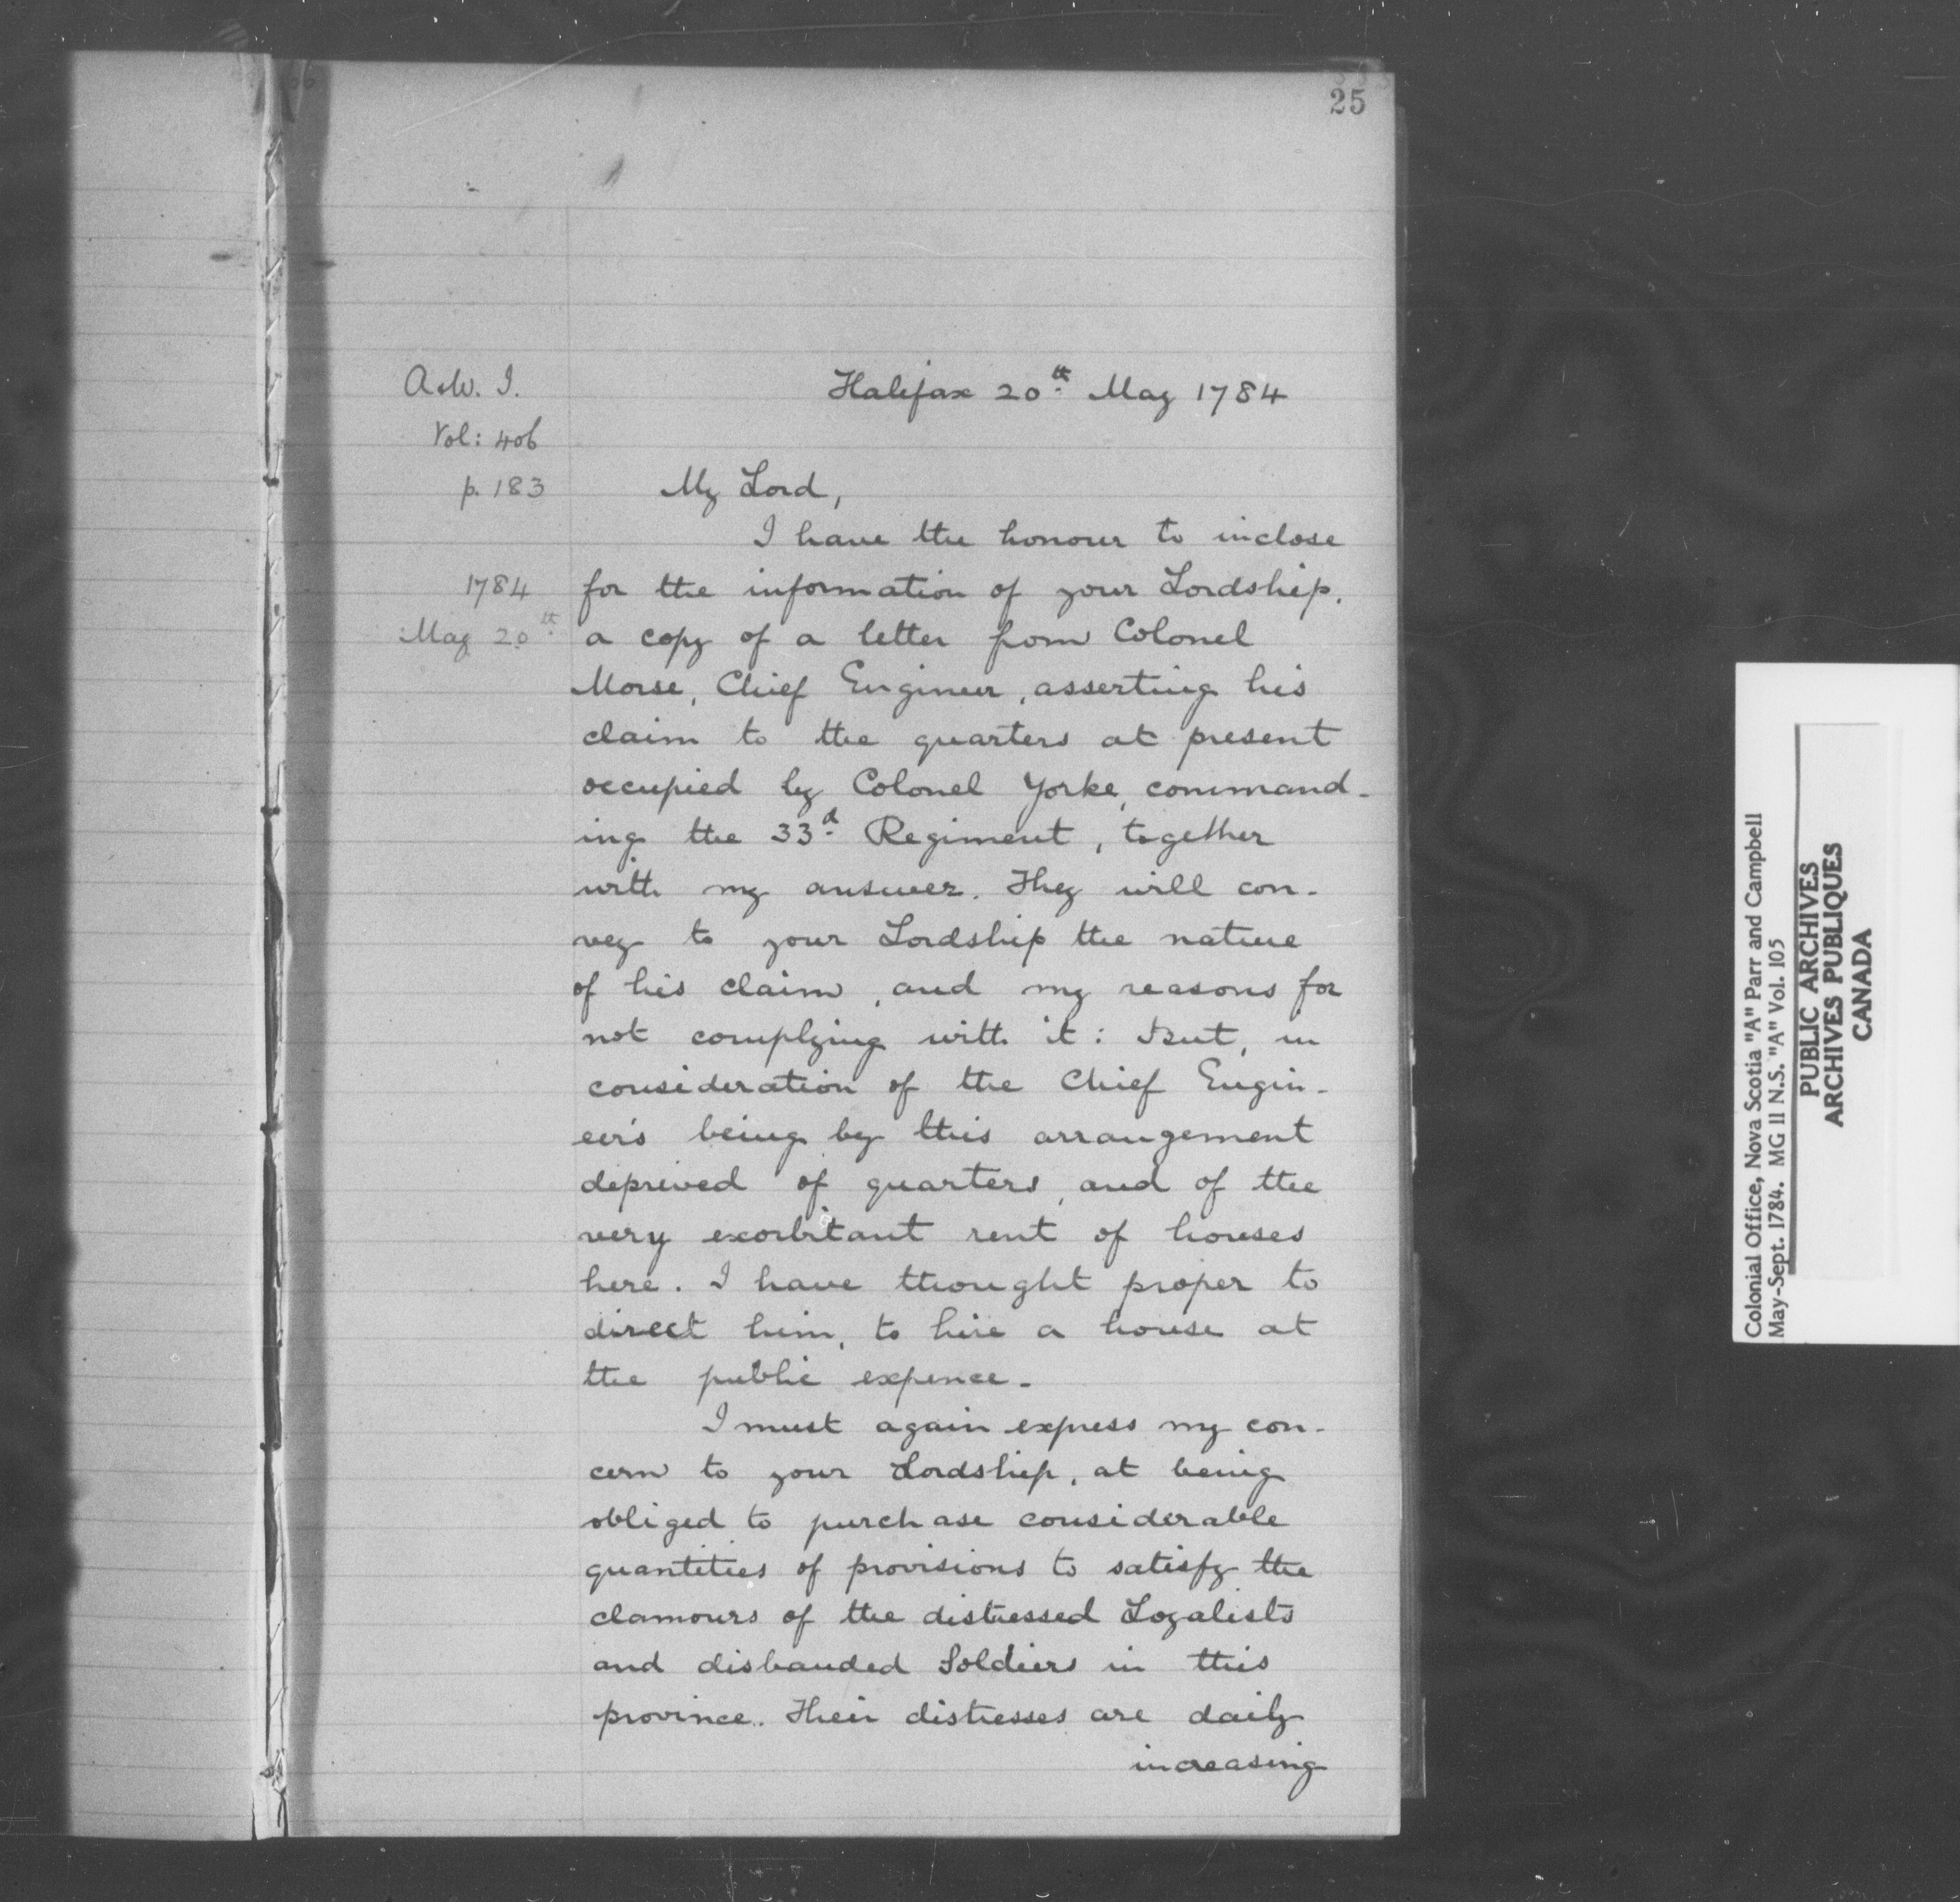 25
A.&W. I.
Vol: 406
p. 183
Halifax 20th May 1784
My Lord,
I have the honour to inclose
1784
May 20th
for the information of your Lordship,
a copy of a letter from Colonel
Morse, Chief Engineer, asserting his
claim to the quarters at present
occupied by Colonel Yorke, command-
ing the 33d Regiment, together
with my answer. They will con-
vey to your Lordship the nature
of his claim, and my reasons for
not complying with it: But, in
consideration of the Chief Engin-
eer's being by this arrangement
deprived of quarters, and of the
very exorbitant rent of houses
here. I have thought proper to
direct him, to hire a house at
the public expence.
I must again express my con-
cern to your Lordship, at being
obliged to purchase considerable
quantities of provisions to satisfy the
clamours of the distressed Loyalists
and disbanded Soldiers in this
province. Their distresses are daily
increasing
Colonial Office, Nova Scotia "A" Parr and Campbell
May-Sept. 1784. MG 11 N.S. "A" Vol. 105
PUBLIC ARCHIVES
ARCHIVES PUBLIQUES
CANADA